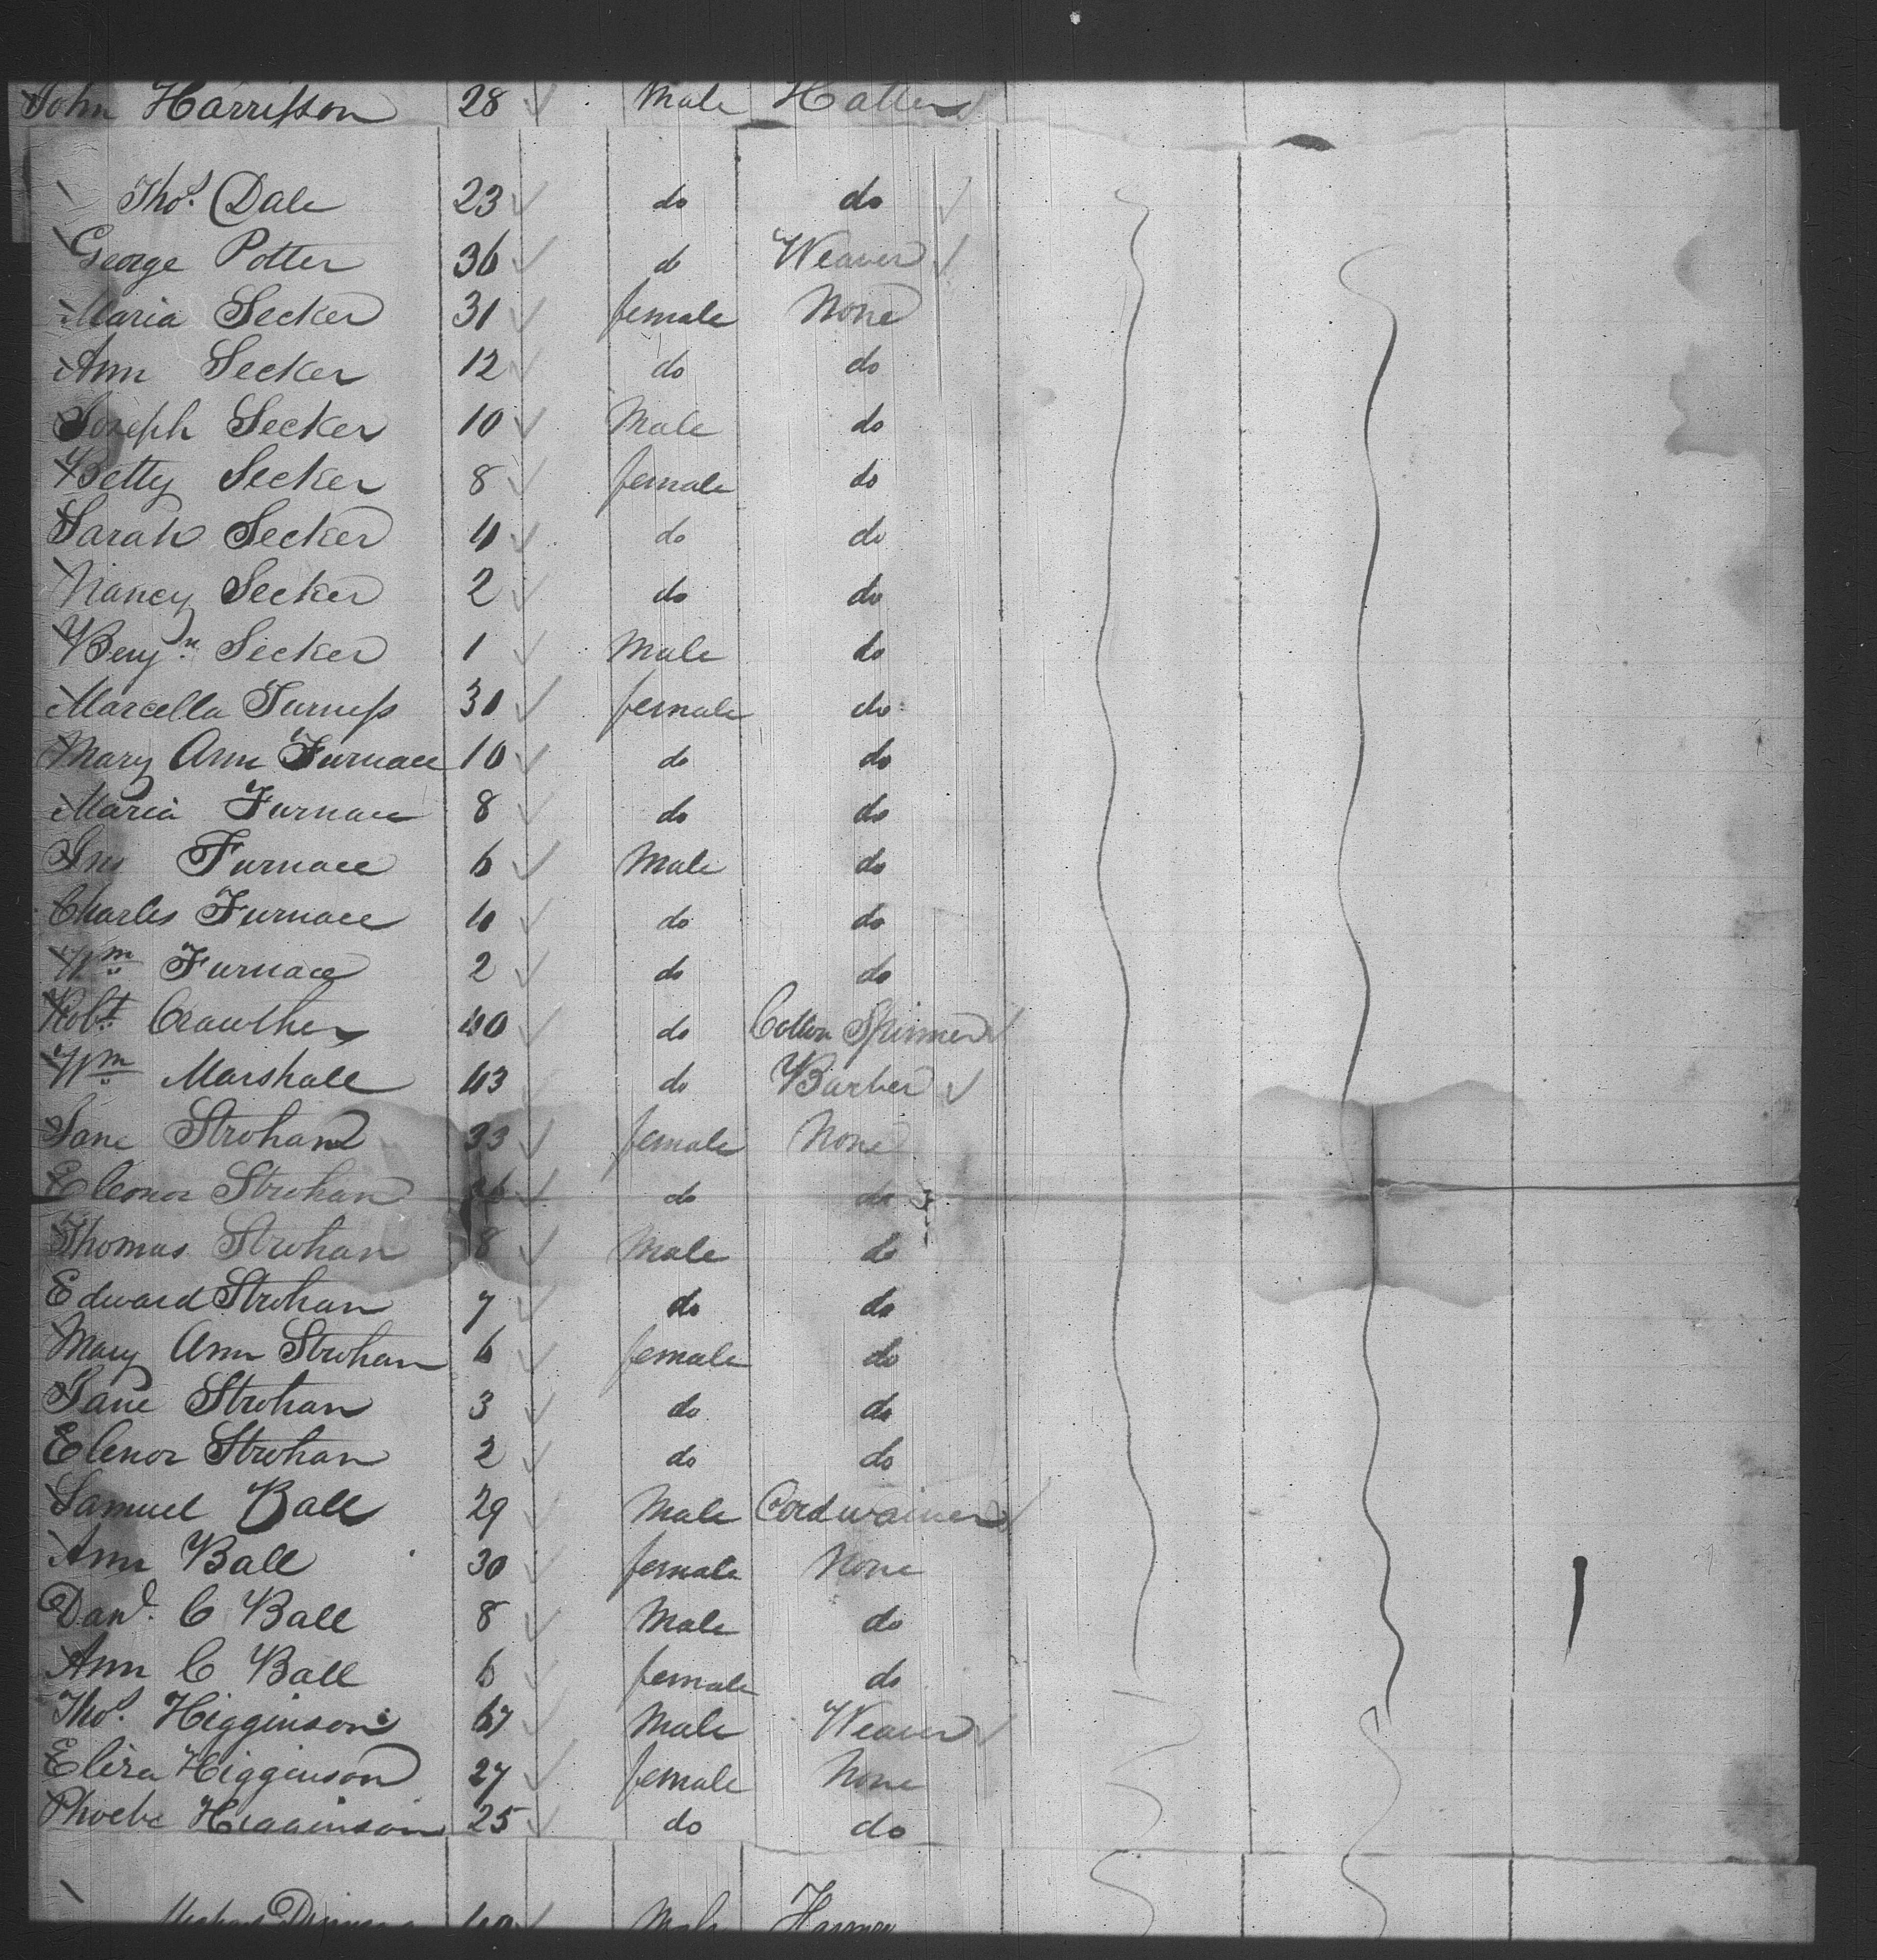 John Harrisson 28 Male Hatter
Thos. Dale 23 do do
George Potter 36 do Weaver
Maria Secker 31 female None
Ann Secker 12 do do
Joseph Secker 10 Male do
Betty Secker 8 female do
Sarah Secker 4 do do
Nancy Secker 2 do do
Benjn. Secker 1 Male do
Marcella Furness 30 female do
Mary Ann Furnace 10 do do
Maria Furnace 8 do do
Jno Furnace 6 Male do
Charles Furnace 4 do do
Wm. Furnace 2 do do
Robt. Crowther 40 do Cotton Spinner
Wm. Marshall 43 do Barber
Jane Strohan 33 female None
Eleonor Strohan do do
Thomas Strohan 8 Male do
Edward Strohan 7 do do
Mary Ann Strohan 6 female do
Jane Strohan 3 do do
Elenor Strohan 2 do do
Samuel Ball 29 Male Cordwainer
Ann Ball 30 female None
Danl. C Ball 8 Male do
Ann C Ball 6 female do
Thos. Higginson 67 Male Weaver
Eliza Higginson 27 female None
Phoebe Higginson 25 do do
Male Farmer